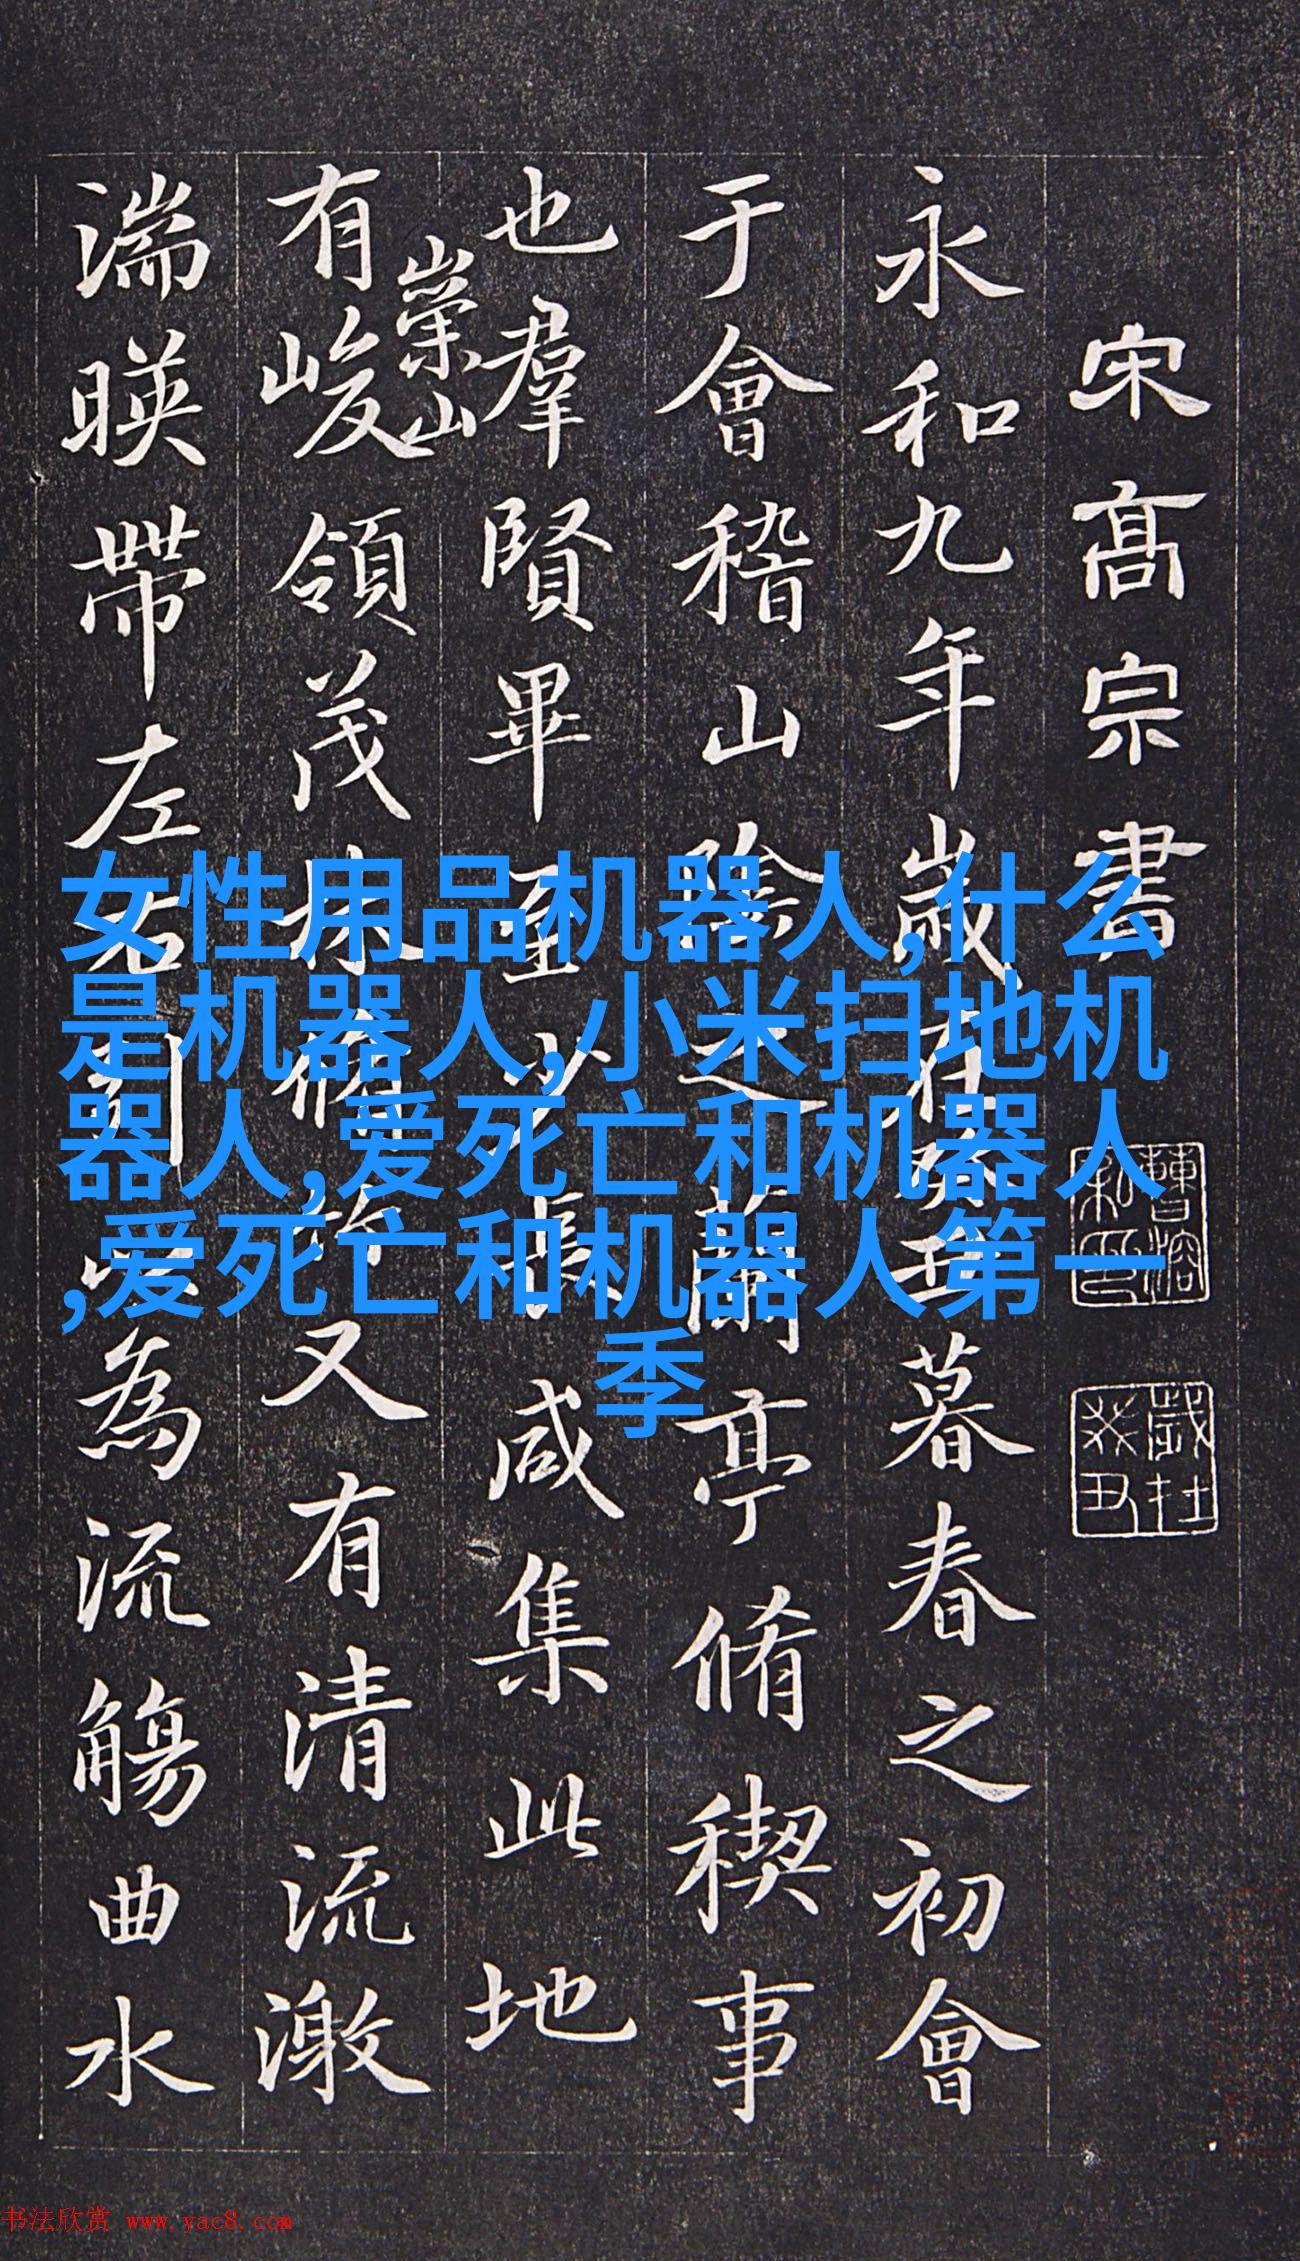 宋高宗書
永和九年歲在癸丑暮春之初會
于會稽山陰之蘭亭脩稧事
也羣賢畢至少長咸集此地
有峻領茂林脩竹又有清流激
崇山
湍暎帶左右引以為流觴曲水
女性用品机器人,什么
是机器人,小米扫地机
器人,爱死亡和机器人
,爱死亡和机器人第一
季
书法欣赏 www.yac8.com